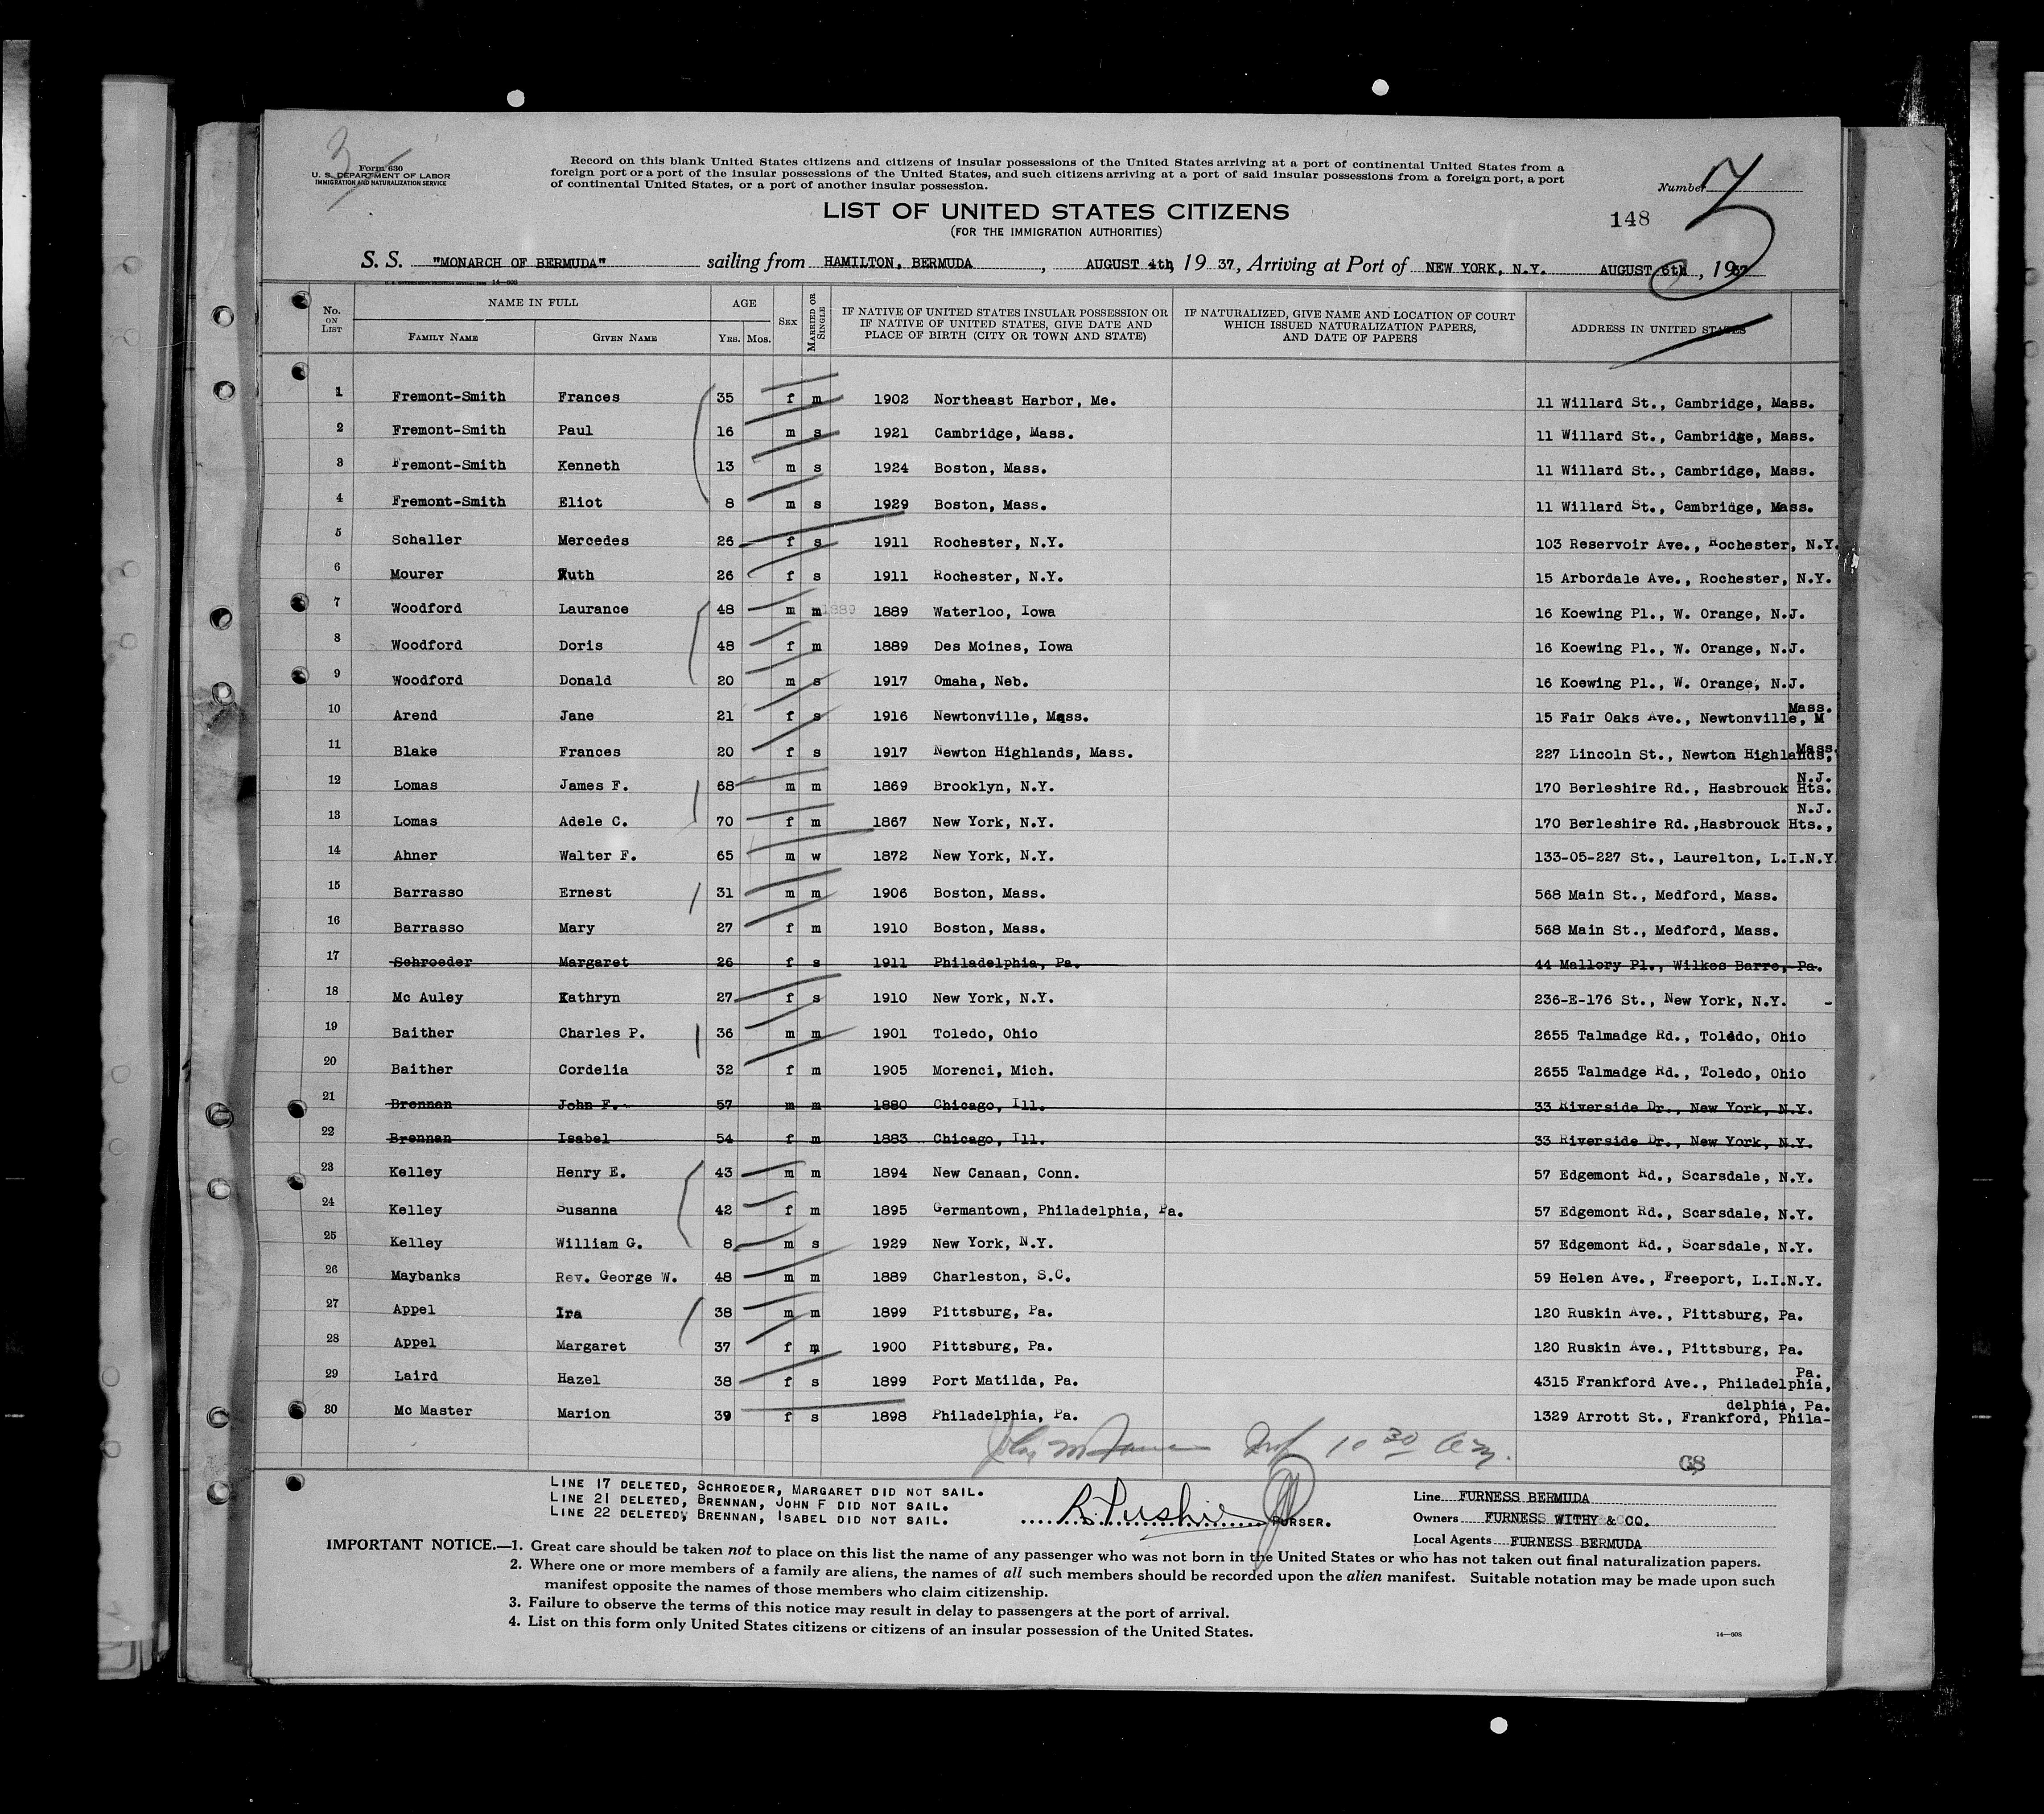 3
Form 630
U. S. DEPARTMENT OF LABOR
IMMIGRATION AND NATURALIZATION SERVICE
Record on this blank United States citizens and citizens of insular possessions of the United States arriving at a port of continental United States from a
foreign port or a port of the insular possessions of the United States, and such citizens arriving at a port of said insular possessions from a foreign port, a port
of continental United States, or a port of another insular possession.
Number 3
148
LIST OF UNITED STATES CITIZENS
(FOR THE IMMIGRATION AUTHORITIES)
S. S. "MONARCH OF BERMUDA" sailing from HAMILTON, BERMUDA, AUGUST 4th, 19 37, Arriving at Port of NEW YORK, N.Y. AUGUST 6th, 1937
No. ON LIST NAME IN FULL FAMILY NAME GIVEN NAME AGE YRS. MOS. SEX MARRIED OR SINGLE IF NATIVE OF UNITED STATES INSULAR POSSESSION OR IF NATIVE OF UNITED STATES, GIVE DATE AND PLACE OF BIRTH (CITY OR TOWN AND STATE) IF NATURALIZED, GIVE NAME AND LOCATION OF COURT WHICH ISSUED NATURALIZATION PAPERS, AND DATE OF PAPERS ADDRESS IN UNITED STATES
1 Fremont-Smith Frances 35 f m 1902 Northeast Harbor, Me. 11 Willard St., Cambridge, Mass.
2 Fremont-Smith Paul 16 m s 1921 Cambridge, Mass. 11 Willard St., Cambridge, Mass.
3 Fremont-Smith Kenneth 13 m s 1924 Boston, Mass. 11 Willard St., Cambridge, Mass.
4 Fremont-Smith Eliot 8 m s 1929 Boston, Mass. 11 Willard St., Cambridge, Mass.
5 Schaller Mercedes 26 f s 1911 Rochester, N.Y. 103 Reservoir Ave., Rochester, N.Y.
6 Mourer Ruth 26 f s 1911 Rochester, N.Y. 15 Arbordale Ave., Rochester, N.Y.
7 Woodford Laurance 48 m m 1889 1889 Waterloo, Iowa 16 Koewing Pl., W. Orange, N.J.
8 Woodford Doris 48 f m 1889 Des Moines, Iowa 16 Koewing Pl., W. Orange, N.J.
9 Woodford Donald 20 m s 1917 Omaha, Neb. 16 Koewing Pl., W. Orange, N.J.
10 Arend Jane 21 f s 1916 Newtonville, Mass. 15 Fair Oaks Ave., Newtonville, M Mass.
11 Blake Frances 20 f s 1917 Newton Highlands, Mass. 227 Lincoln St., Newton Highlands, Mass.
12 Lomas James F. 68 m m 1869 Brooklyn, N.Y. 170 Berleshire Rd., Hasbrouck Hts. N.J.
13 Lomas Adele C. 70 f m 1867 New York, N.Y. 170 Berleshire Rd.,Hasbrouck Hts., N.J.
14 Ahner Walter F. 65 m w 1872 New York, N.Y. 133-05-227 St., Laurelton, L.I.N.Y.
15 Barrasso Ernest 31 m m 1906 Boston, Mass. 568 Main St., Medford, Mass.
16 Barrasso Mary 27 f m 1910 Boston, Mass. 568 Main St., Medford, Mass.
17 Schroeder Margaret 26 f s 1911 Philadelphia, Pa. 44 Mallory Pl., Wilkes Barre, Pa.
18 Mc Auley Kathryn 27 f s 1910 New York, N.Y. 236-E-176 St., New York, N.Y. -
19 Baither Charles P. 36 m m 1901 Toledo, Ohio 2655 Talmadge Rd., Toledo, Ohio
20 Baither Cordelia 32 f m 1905 Morenci, Mich. 2655 Talmadge Rd., Toledo, Ohio
21 Brennan John F. 57 m m 1880 Chicago, Ill. 33 Riverside Dr., New York, N.Y.
22 Brennan Isabel 54 f m 1883 Chicago, Ill. 33 Riverside Dr., New York, N.Y.
23 Kelley Henry E. 43 m m 1894 New Canaan, Conn. 57 Edgemont Rd., Scarsdale, N.Y.
24 Kelley Susanna 42 f m 1895 Germantown, Philadelphia, Pa. 57 Edgemont Rd., Scarsdale, N.Y.
25 Kelley William G. 8 m s 1929 New York, N.Y. 57 Edgemont Rd., Scarsdale, N.Y.
26 Maybanks Rev. George W. 48 m m 1889 Charleston, S.C. 59 Helen Ave., Freeport, L.I.N.Y.
27 Appel Ira 38 m m 1899 Pittsburg, Pa. 120 Ruskin Ave., Pittsburg, Pa.
28 Appel Margaret 37 f m 1900 Pittsburg, Pa. 120 Ruskin Ave., Pittsburg, Pa.
29 Laird Hazel 38 f s 1899 Port Matilda, Pa. 4315 Frankford Ave., Philadelphia, Pa.
30 Mc Master Marion 39 f s 1898 Philadelphia, Pa. 1329 Arrott St., Frankford, Phila- delphia, Pa.
10 30
LINE 17 DELETED, SCHROEDER, MARGARET DID NOT SAIL.
LINE 21 DELETED, BRENNAN, JOHN F DID NOT SAIL.
LINE 22 DELETED, BRENNAN, ISABEL DID NOT SAIL.
PURSER.
Line FURNESS BERMUDA
Owners FURNESS WITHY & CO.
Local Agents FURNESS BERMUDA
IMPORTANT NOTICE.—1. Great care should be taken not to place on this list the name of any passenger who was not born in the United States or who has not taken out final naturalization papers.
2. Where one or more members of a family are aliens, the names of all such members should be recorded upon the alien manifest. Suitable notation may be made upon such
manifest opposite the names of those members who claim citizenship.
3. Failure to observe the terms of this notice may result in delay to passengers at the port of arrival.
4. List on this form only United States citizens or citizens of an insular possession of the United States.
14—608